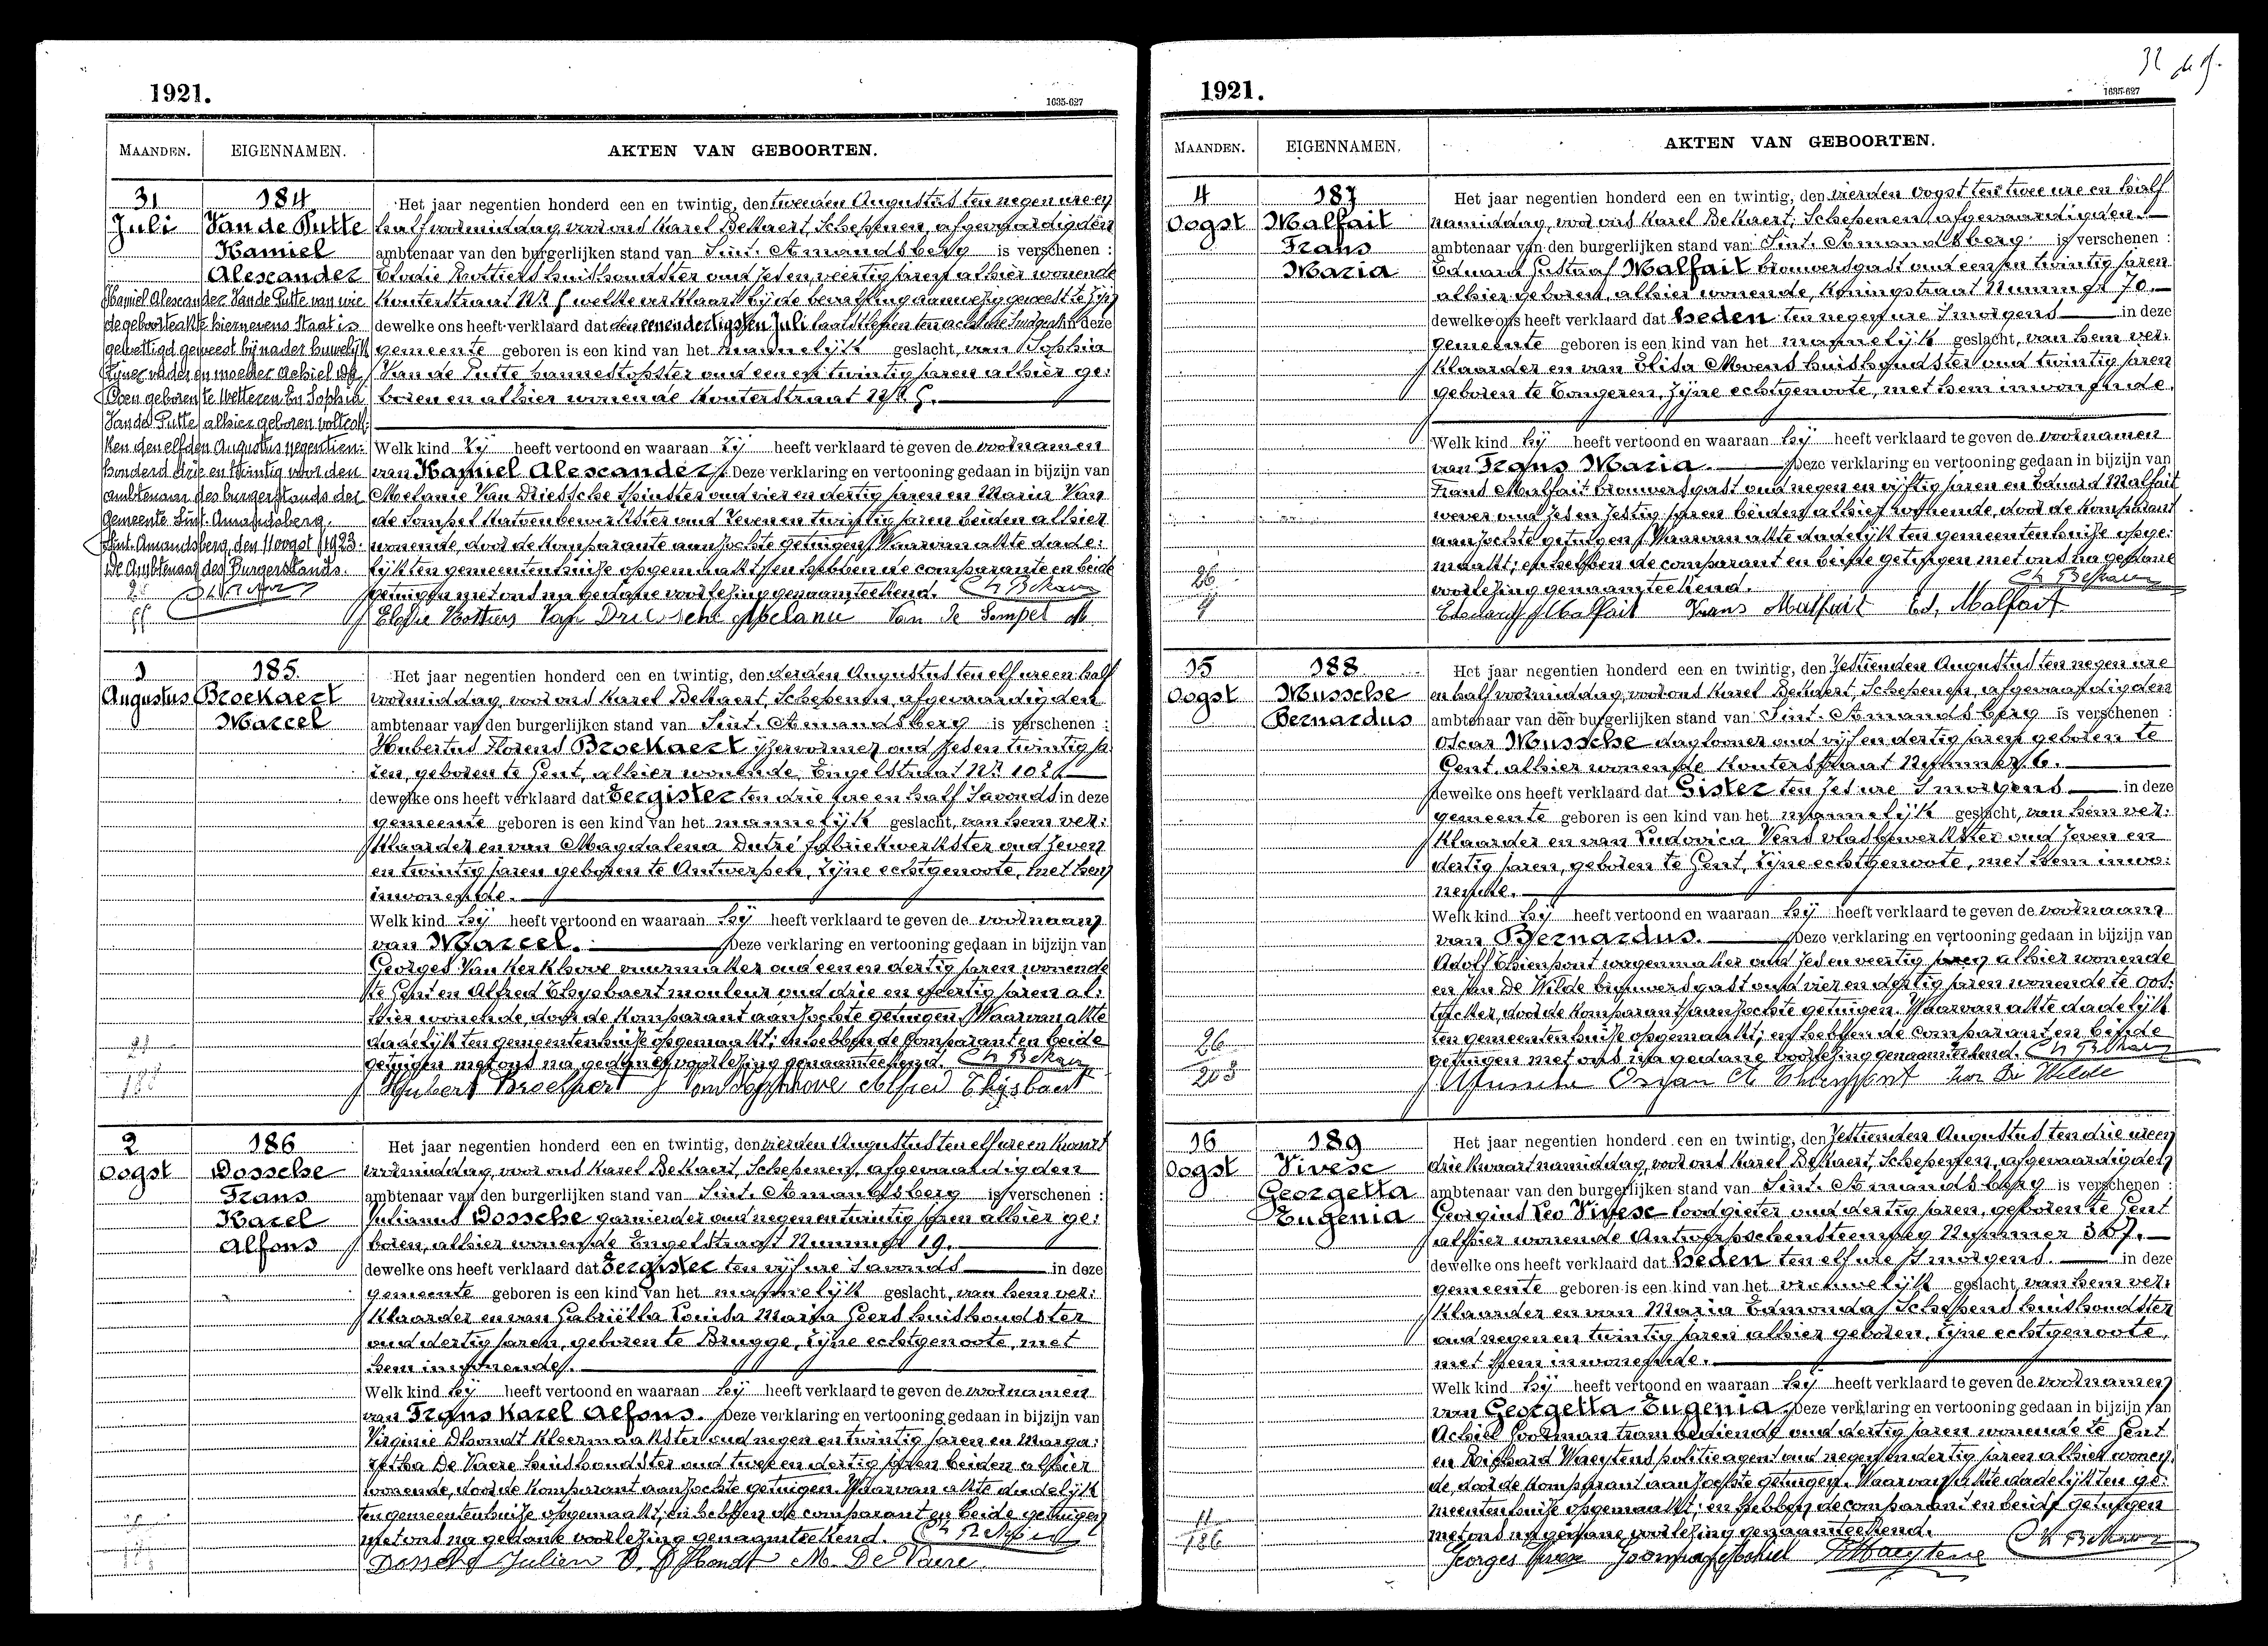 1921.
1635-627
MAANDEN. EIGENNAMEN. AKTEN VAN GEBOORTEN.
31 184
Juli Van de Putte
Kamiel
Alexander
Het jaar negentien honderd een en twintig, den tweeden Augustus ten negen ure en
half voormiddag, voor ons Karel Bekaert, Schepenen, afgevaardigden
ambtenaar van den burgerlijken stand van Sint-Amandsberg is verschenen :
Elodie Rottiers huishoudster oud zes en veertig jaren alhier wonende
Kouterstraat Nr 5 welke verklaart bij de bevalling aanwezig geweest te zijn
dewelke ons heeft verklaard dat den eenendertigsten Juli laatstleden ten acht ure 's morgens in deze
gemeente geboren is een kind van het mannelijk geslacht, van Sophia
Van de Putte bannestopster oud een en twintig jaren alhier ge-
boren en alhier wonende Kouterstraat Nr 5.
Kamiel Alexander Van de Putte van wie
de geboorteakte hiernevens staat is
gewettigd geweest bij nader huwelijk
zijner vader en moeder Achiel
geboren te Wetteren En Sophia
Van de Putte alhier geboren voltrok-
ken den elfden Augustus negentien-
honderd drie en twintig voor den
ambtenaar des burgerstands der
gemeente Sint-Amandsberg.
Sint-Amandsberg, den 11 oogst 1923.
De Ambtenaar des Burgerstands.
Welk kind Zij heeft vertoond en waaraan Zij heeft verklaard te geven de voornamen
van Kamiel Alexander. Deze verklaring en vertooning gedaan in bijzijn van
Melanie Van Driessche spinster oud vier en dertig jaren en Maria Van
de Sompel katoenbewerkster oud zeven en twintig jaren beiden alhier
wonende, door de komparante aanzochte getuigen. Waarvan akte dade-
lijk ten gemeentenhuize opgemaakt; en hebben de comparante en beide
getuigen met ons na gedane voorlezing genaamteekend. Ch Bekaert
Elodie Rottiers Van Driessche Melanie Van de Sompel M
3 185.
Augustus Broekaert
Marcel
Het jaar negentien honderd een en twintig, den derden Augustus ten elf ure en half
voormiddag, voor ons Karel Bekaert, Schepenen, afgevaardigden
ambtenaar van den burgerlijken stand van Sint-Amandsberg is verschenen :
Hubertus Florens Broekaert ijzervormer oud zes en twintig ja-
ren, geboren te Gent, alhier wonende, Engelstraat Nr
dewelke ons heeft verklaard dat Eergister ten drie ure en half 's avonds in deze
gemeente geboren is een kind van het mannelijk geslacht, van hem ver-
klaarder en van Magdalena Dutré fabriekwerkster oud zeven
en twintig jaren geboren te Antwerpen, zijne echtgenoote, met hem
inwonende.
Welk kind hij heeft vertoond en waaraan hij heeft verklaard te geven de voornaam
van Marcel. Deze verklaring en vertooning gedaan in bijzijn van
Georges Van Kerkhove vuurmaker oud een en dertig jaren wonende
te Gent en Alfred Thijsbaert mouleur oud drie en veertig jaren al-
hier wonende, door de komparant aanzochte getuigen. Waarvan akte
dadelijk ten gemeentenhuize opgemaakt; en hebben de comparant en beide
getuigen met ons na gedane voorlezing genaamteekend. Ch Bekaert
Hubert Broekaert Van Kerkhove Alfred Thijsbaert
2 186
Oogst Dossche
Frans
Karel
Alfons
Het jaar negentien honderd een en twintig, den vierden Augustus ten elf ure en kwart
voormiddag, voor ons Karel Bekaert, Schepenen, afgevaardigden
ambtenaar van den burgerlijken stand van Sint-Amandsberg is verschenen :
Julianus Dossche garnierder oud negen en twintig jaren alhier ge-
boren, alhier wonende Engelstraat Nummer 19.
dewelke ons heeft verklaard dat Eergister ten vijf ure 's avonds in deze
gemeente geboren is een kind van het mannelijk geslacht, van hem ver-
klaarder en van Gabriëlla Louisa Maria Geers huishoudster
oud dertig jaren, geboren te Brugge, zijne echtgenoote, met
hem inwonende.
Welk kind hij heeft vertoond en waaraan hij heeft verklaard te geven de voornamen
van Frans Karel Alfons. Deze verklaring en vertooning gedaan in bijzijn van
Virginie Dhondt kleermaakster oud negen en twintig jaren en Marga-
retha De Vaere huishoudster oud twee en dertig jaren beiden alhier
wonende, door de komparant aanzochte getuigen. Waarvan akte dadelijk
ten gemeentenhuize opgemaakt; en hebben de comparant en beide getuigen
met ons na gedane voorlezing genaamteekend. Ch Bekaert
Dossche Julien V. D'Hondt M. De Vaere
1921.
1635-627
MAANDEN. EIGENNAMEN. AKTEN VAN GEBOORTEN.
4 187
Oogst Malfait
Frans
Maria
Het jaar negentien honderd een en twintig, den vierden oogst ten twee ure en half
namiddag, voor ons Karel Bekaert, Schepenen, afgevaardigden
ambtenaar van den burgerlijken stand van Sint-Amandsberg is verschenen :
Eduard Gustaaf Malfait brouwersgast oud een en twintig jaren
alhier geboren, alhier wonende, Koningstraat Nummer 70.
dewelke ons heeft verklaard dat heden ten negen ure 's morgens in deze
gemeente geboren is een kind van het mannelijk geslacht, van hem ver-
klaarder en van Elisa Moens huishoudster oud twintig jaren
geboren te Tongeren, zijne echtgenoote, met hem inwonende.
Welk kind hij heeft vertoond en waaraan hij heeft verklaard te geven de voornamen
van Frans Maria. Deze verklaring en vertooning gedaan in bijzijn van
Frans Malfait brouwersgast oud negen en vijftig jaren en Eduard Malfait
wever oud zes en zestig jaren beiden alhier wonende, door de komparant
aanzochte getuigen. Waarvan akte dadelijk ten gemeentenhuize opge-
maakt; en hebben de comparant en beide getuigen met ons na gedane
voorlezing genaamteekend. Ch Bekaert
26
Eduard Malfait Frans Malfait Ed, Malfait
15 188
Oogst Mussche
Bernardus
Het jaar negentien honderd een en twintig, den Zestienden Augustus ten negen ure
en half voormiddag, voor ons Karel Bekaert, Schepenen, afgevaardigden
ambtenaar van den burgerlijken stand van Sint-Amandsberg is verschenen :
Oscar Mussche dagloner oud vijf en dertig jaren geboren te
Gent, alhier wonende Kouterstraat Nummer 6.
dewelke ons heeft verklaard dat Gister ten zes ure 's morgens in deze
gemeente geboren is een kind van het mannelijk geslacht, van hem ver-
klaarder en van Ludovica Vens vlasbewerkster oud zeven en
dertig jaren, geboren te Gent, zijne echtgenoote, met hem inwo-
nende.
Welk kind hij heeft vertoond en waaraan hij heeft verklaard te geven de voornaam
van Bernardus. Deze verklaring en vertooning gedaan in bijzijn van
Adolf Thienpont wagenmaker oud zes en veertig jaren alhier wonende
en Jan De Wilde brouwersgast oud vier en dertig jaren wonende te Oos-
tacker, door de komparant aanzochte getuigen. Waarvan akte dadelijk
ten gemeentenhuize opgemaakt; en hebben de comparant en beide
getuigen met ons na gedane voorlezing genaamteekend. Ch Bekaert
26
203
Mussche Oscar A. Thienpont Jan De Wilde
16 189
Oogst Vivese
Georgetta
Eugenia
Het jaar negentien honderd een en twintig, den Zestienden Augustus ten drie ure en
drie kwaart namiddag, voor ons Karel Bekaert, Schepenen, afgevaardigden
ambtenaar van den burgerlijken stand van Sint-Amandsberg is verschenen :
Georgius Leo Vivese loodgieter oud dertig jaren, geboren te Gent
alhier wonende Antwerpschensteenweg Nummer 367.
dewelke ons heeft verklaard dat heden ten elf ure 's morgens. in deze
gemeente geboren is een kind van het vrouwelijk geslacht, van hem ver-
klaarder en van Maria Edmonda Schepens huishoudster
oud negen en twintig jaren alhier geboren, zijne echtgenoote,
met hem inwonende.
Welk kind hij heeft vertoond en waaraan hij heeft verklaard te geven de voornamen
van Georgetta Eugenia. Deze verklaring en vertooning gedaan in bijzijn van
Achiel Poorman trambediende oud dertig jaren wonende te Gent
en Richard Waeytens politieagent oud negen en dertig jaren alhier wonen-
de, door de komparant aanzochte getuigen. Waarvan akte dadelijk ten ge-
meentenhuize opgemaakt; en hebben de comparant en beide getuigen
met ons na gedane voorlezing genaamteekend. Ch Bekaert
11
186